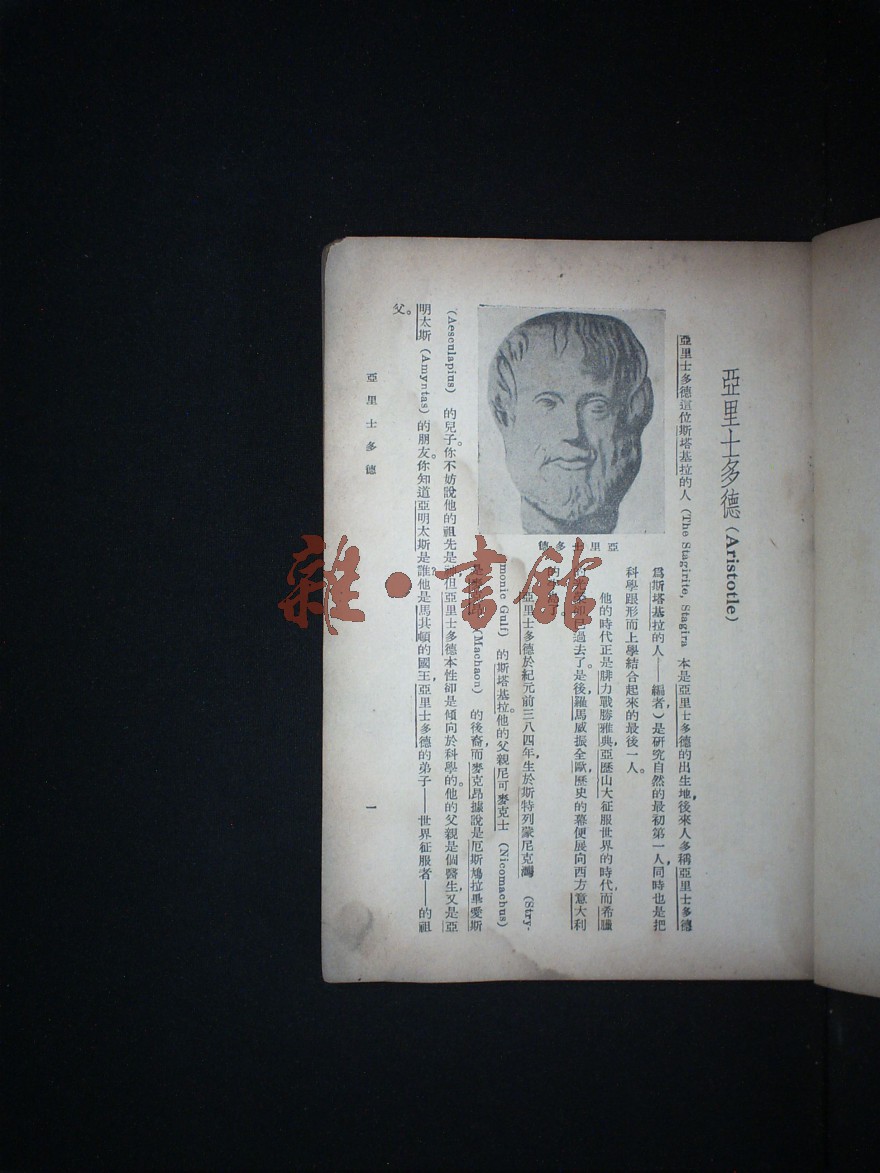 亞里士多德 (Aristotle)
亞里士多德這位斯塔基拉的人 (The Stagirite, Stagira 本是亞里士多德的出生地,後來人多稱亞里士多德
爲斯塔基拉的人——編者)是研究自然的最初第一人,同時也是把
科學跟形而上學結合起來的最後一人。
他的時代正是腓力戰勝雅典,亞歷山大征服世界的時代,而希臘
已過去了。是後,羅馬威振全歐,歷史的幕便展向西方意大利
的
亞里士多德
亞里士多德於紀元前三八四年,生於斯特列蒙尼克灣 (Stry-
monic Gulf) 的斯塔基拉。他的父親尼可麥克士 (Nicomachus)
是 (Machaon) 的後裔,而麥克昂據說是厄斯鳩拉畢愛斯
(Aesculapius) 的兒子。你不妨說他的祖先是 但亞里士多德本性卻是傾向於科學的。他的父親是個醫生,又是亞
明太斯 (Amyntas) 的朋友。你知道亞明太斯是誰?他是馬其頓的國王,亞里士多德的弟子——世界征服者——的祖
父。
亞里士多德
一
雜·書館